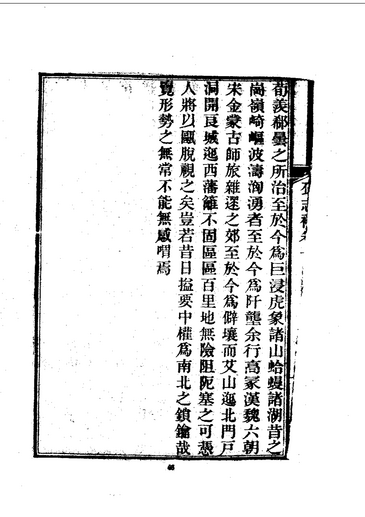 荀羨郗曇之所治至於今爲巨浸虎象諸山蛤蟃諸湖昔之
崗嶺崎嶇波濤洶湧者至於今爲阡壟余行高冢漢魏六朝
宋金蒙古師旅雜遝之郊至於今爲僻壤而艾山迤北門戶
洞開良城迤西藩籬不固區區百里地無險阻阨塞之可憑
人將以甌脫視之矣豈若昔日搤要中權爲南北之鎖鑰哉
覽形勢之無常不能無感喟焉